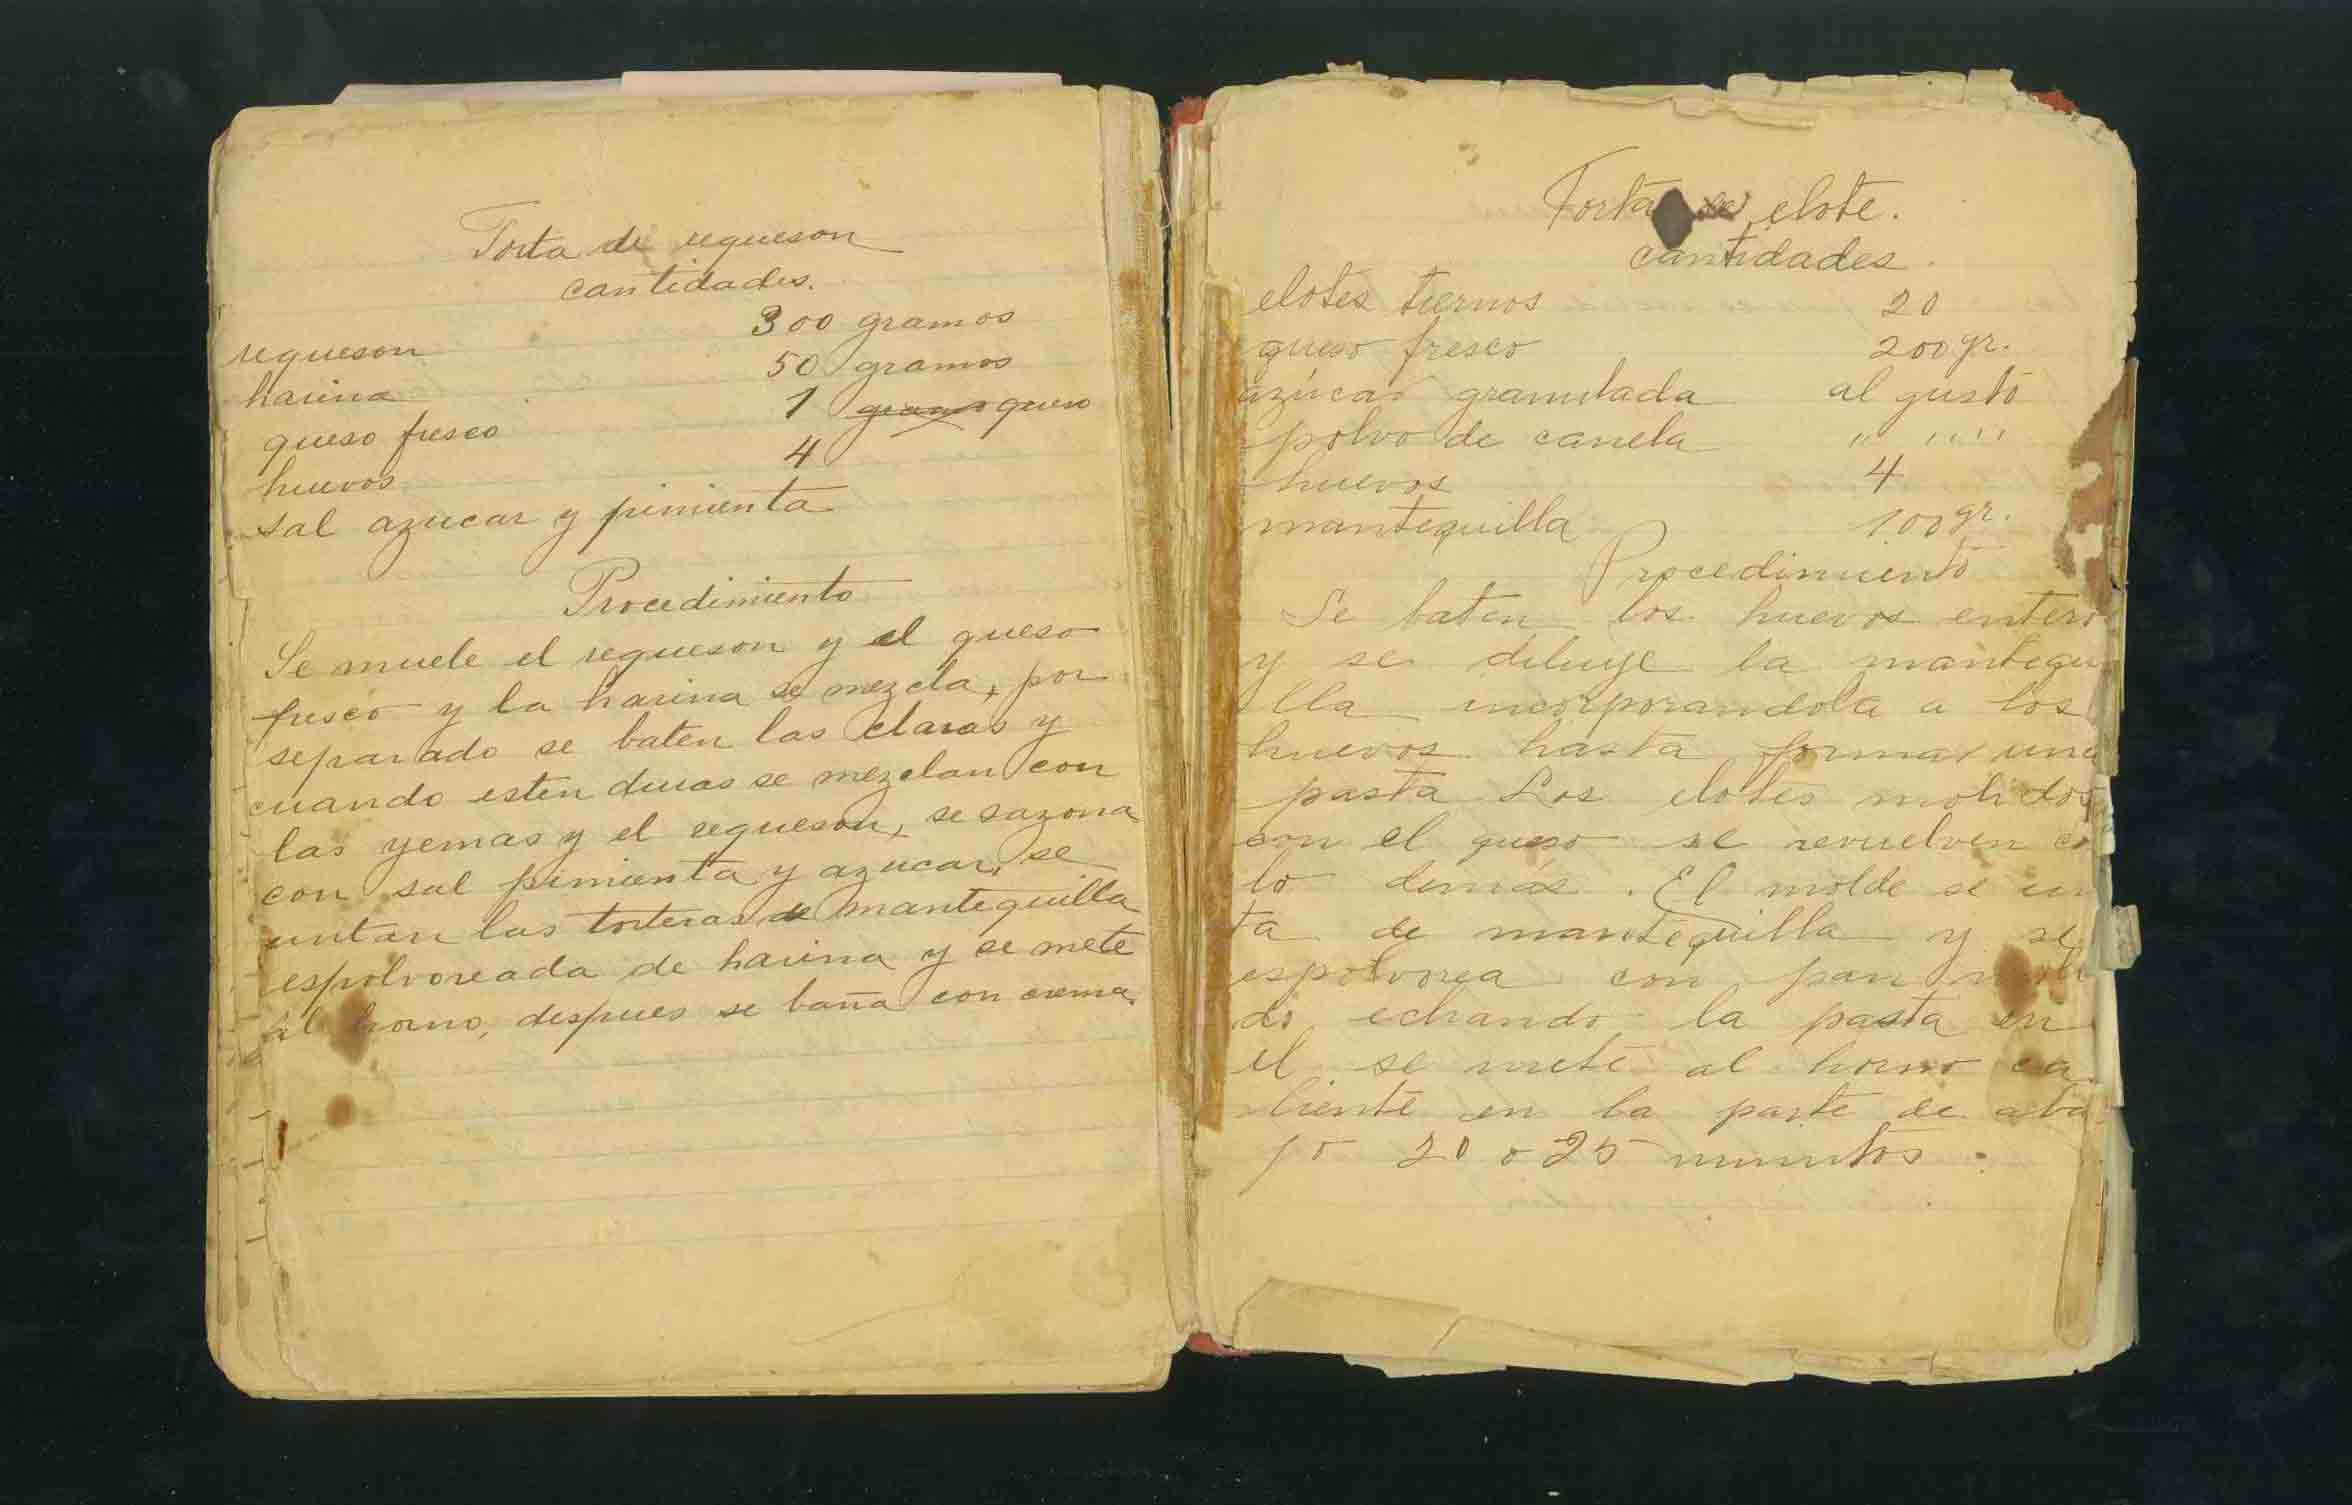 Torta de requeson
cantidades.
requeson 300 gramos
harina 50 gramos
queso fresco 1 gramo queso
huevos 4
sal azucar y pimienta
Procedimiento
Se muele el requeson y el queso
fresco y la harina se mezcla, por
separado se baten las claras y
cuando esten duras se mezclan con
las yemas y el requeson, se sazona
con sal pimienta y azucar, se
untan las torteras de mantequilla
espolvoreada de harina y se mete
al horno, despues se baña con crema.
Torta de elote.
cantidades.
elotes tiernos 20
queso fresco 200 gr.
azúcar granulada al gusto
polvo de canela " " "
huevos 4
mantequilla 100 gr.
Procedimiento
Se baten los huevos entero
y se diluye la mantequi
lla incorporandola a los
huevos hasta formar una
pasta Los elotes molidos
con el queso se revuelven co
lo demás. El molde se un
ta de mantequilla y se
espolvorea con pan moli
do echando la pasta en
el se mete al horno ca
liente en la parte de aba
jo 20 o 25 minutos.